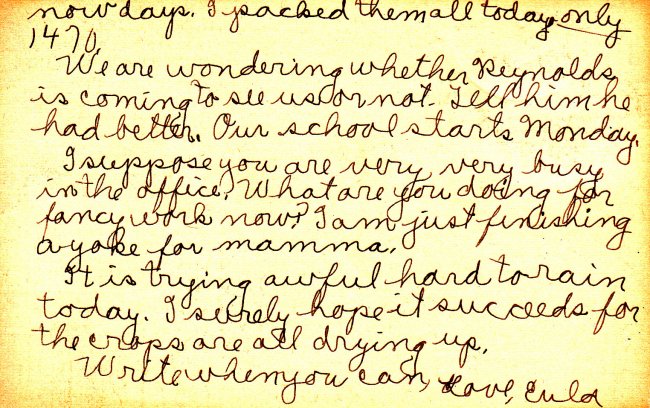 now days. I packed them all today, only
1470.
We are wondering whether Reynolds
is coming to see us or not. Tell him he
had better. Our school starts Monday.
I suppose you are very, very busy
in the office. What are you doing for
fancy work now? I am just finishing
a yoke for mamma.
It is trying awful hard to rain
today. I surely hope it succeeds for
the crops are all drying up.
Write when you can, Love, Eula